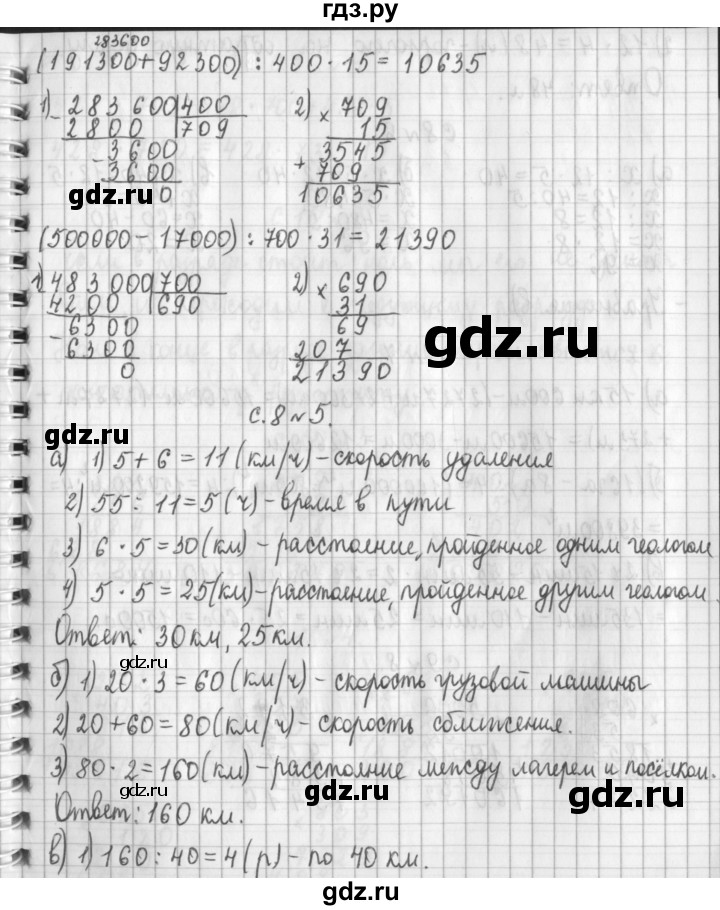 гдз.ру
283600
(191300+92300) : 400 · 15 = 10635
1) 283600 | 400
2800 | 709
- 3600
3600
0
2) × 709
15
3545
+ 709
10635
gdz.ru
(500000 - 17000) : 700 · 31 = 21390
1) 483000 | 700
4200 | 690
- 6300
6300
0
2) × 690
31
69
207
21390
gdz.ru
с. 8 № 5.
а) 1) 5 + 6 = 11 (км/ч) - скорость удаления
2) 55 : 11 = 5 (ч) - время в пути
3) 6 · 5 = 30 (км) - расстояние, пройденное одним геологом
4) 5 · 5 = 25 (км) - расстояние, пройденное другим геологом.
Ответ: 30 км, 25 км.
gdz.ru
б) 1) 20 · 3 = 60 (км/ч) - скорость грузовой машины
2) 20 + 60 = 80 (км/ч) - скорость сближения.
gdz.ru
3) 80 · 2 = 160 (км) - расстояние между лагерем и посёлком.
Ответ: 160 км.
gdz.ru
gdz.ru
в) 1) 160 : 40 = 4 (р) - по 40 км.
gdz.ru